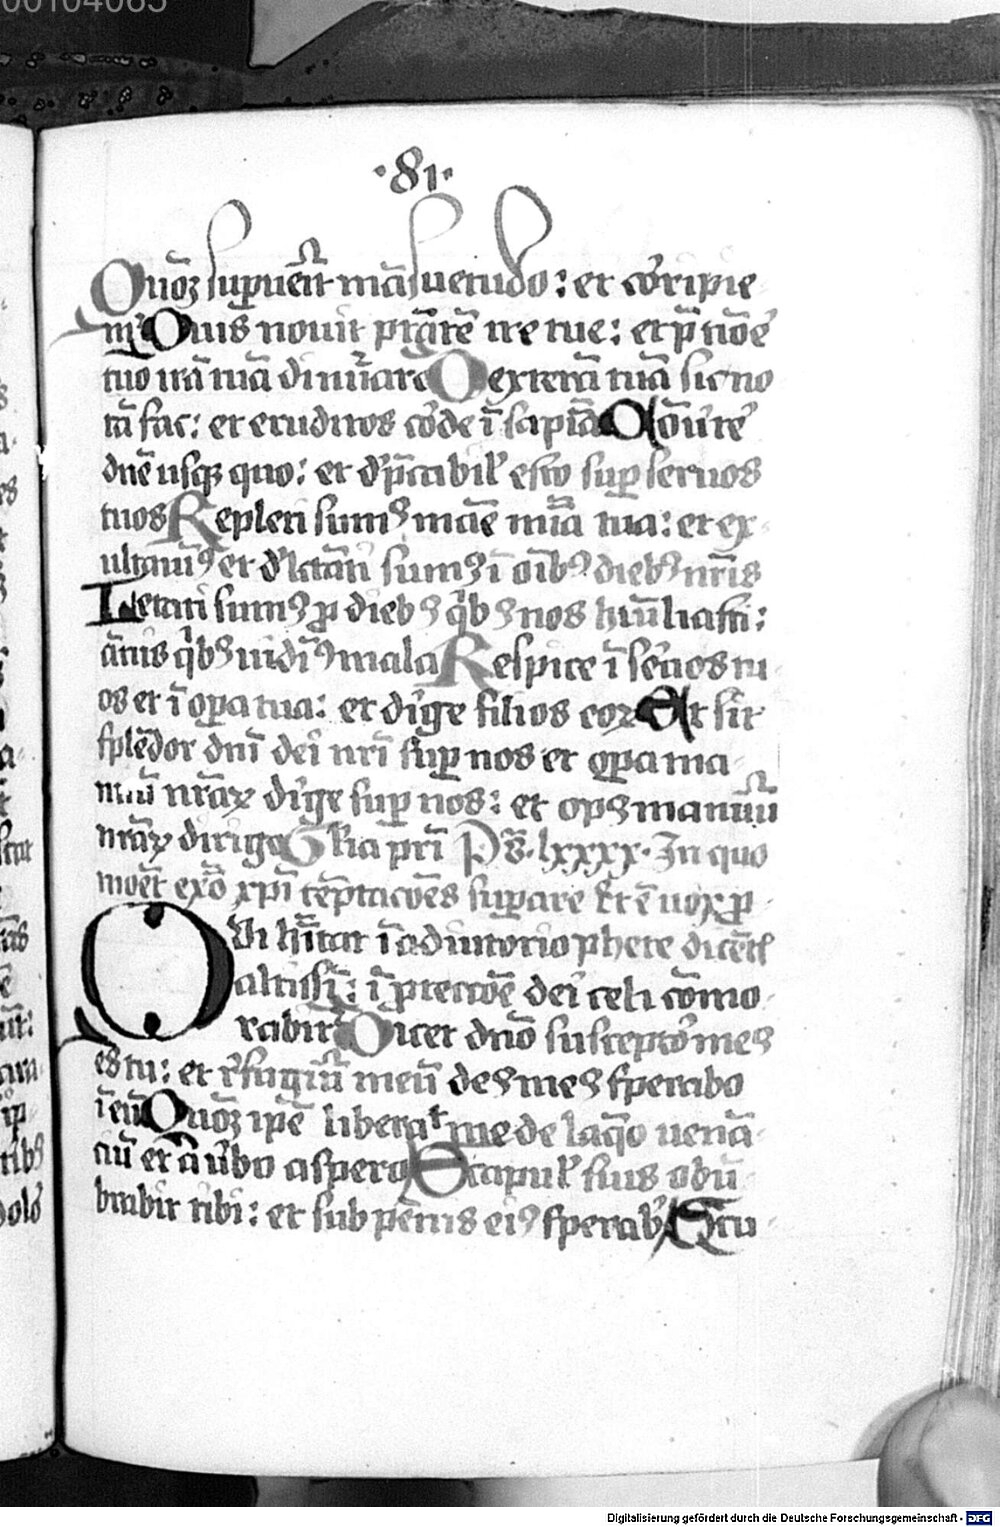 ·81·
Quoꝫ suꝑueīt māsuetudo: et coripie
mᷣ Quis nouit ptātē ire tue: et p̄ tiōē
tuo irā tuā dinūare Dexterā tuā sic no
tā fac: et eruditos cōde ī sapīa Cōu͛tē
dn̄e usqꝫ quo: et dp̄cabil' esto suꝑ seruos
tuos Repleti sumꝰ māe mīa tua: et ex
ultauīꝰ et dl̓ctātī sumꝰ ī oībꝰ diebꝰ nr̄is
Letati sumꝰ ꝓ diebꝰ qⁱbꝰ nos hūiliasti:
ānis qⁱbꝰ uidīꝰ mala Respice ī sēuos tu
os et ī oꝑa tua: et dīge filios eoꝝ Et sit
splēdor dn̄i dei nr̄i suꝑ nos et oꝑa ma
nuū nr̄aꝝ dīge suꝑ nos: et opꝰ manuū
nr̄aꝝ dirige Glīa pr̄i Ps̄. lxxxx. In quo
moēt exō xp̄i tēptacōēs suꝑare Et ē uox ꝓ
Qui hītat ī adiutorio phete dicēt'
altissī: ī ꝓtectōē dei celi cōmo
rabitᷣ Dicet dn̄o susceptoͬ meꝰ
es tu: et r̓fugiū meū deꝰ meꝰ sperabo
ī eū Quoꝫ ipē liberaᵗ me de laq̄o uenā
ciū et ā u͛bo aspero Scapul' suis obū
brabit tibi: et sub pēnis eiꝰ sperab' Scu
Digitalisierung gefördert durch die Deutsche Forschungsgemeinschaft - DFG